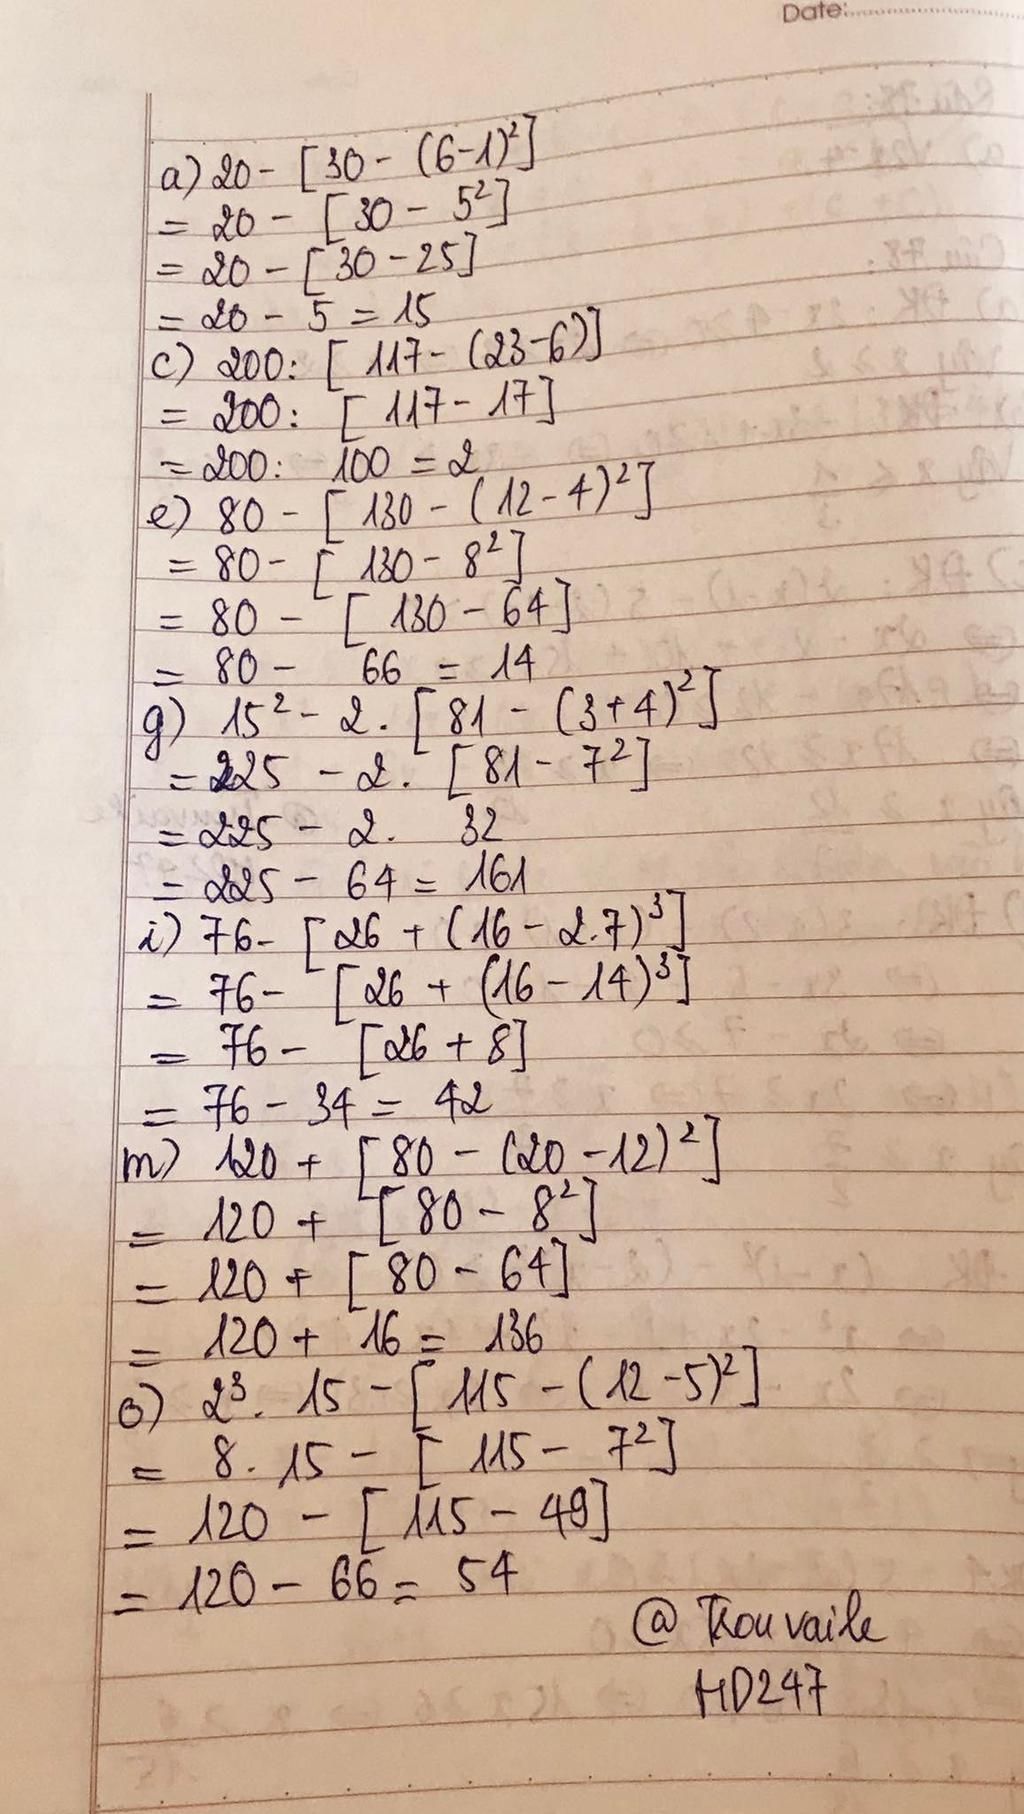 Date:
a) 20 - [30 - (6-1)²]
= 20 - [30 - 5²]
= 20 - [30 - 25]
= 20 - 5 = 15
c) 200: [117 - (23-6)]
= 200: [117 - 17]
= 200: 100 = 2
e) 80 - [130 - (12 - 4)²]
= 80 - [130 - 8²]
= 80 - [130 - 64]
= 80 - 66 = 14
g) 15² - 2. [81 - (3+4)²]
= 225 - 2. [81 - 7²]
= 225 - 2. 32
= 225 - 64 = 161
i) 76 - [26 + (16 - 2.7)³]
= 76 - [26 + (16 - 14)³]
= 76 - [26 + 8]
= 76 - 34 = 42
m) 120 + [80 - (20 - 12)²]
= 120 + [80 - 8²]
= 120 + [80 - 64]
= 120 + 16 = 136
o) 2³. 15 - [115 - (12 - 5)²]
= 8. 15 - [115 - 7²]
= 120 - [115 - 49]
= 120 - 66 = 54
@ Trouvaile
HD247